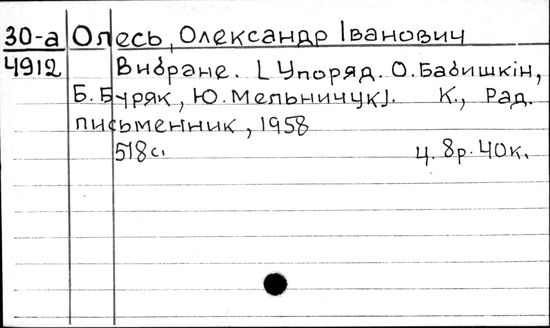 30-а Олесь, Олександр Іванович
4912 Вибране. [Упоряд. О. Бабишкін,
Б. Буряк, Ю. Мельничук]. К., Рад.
письменник, 1958
518с. Ц. 8р. 40к.